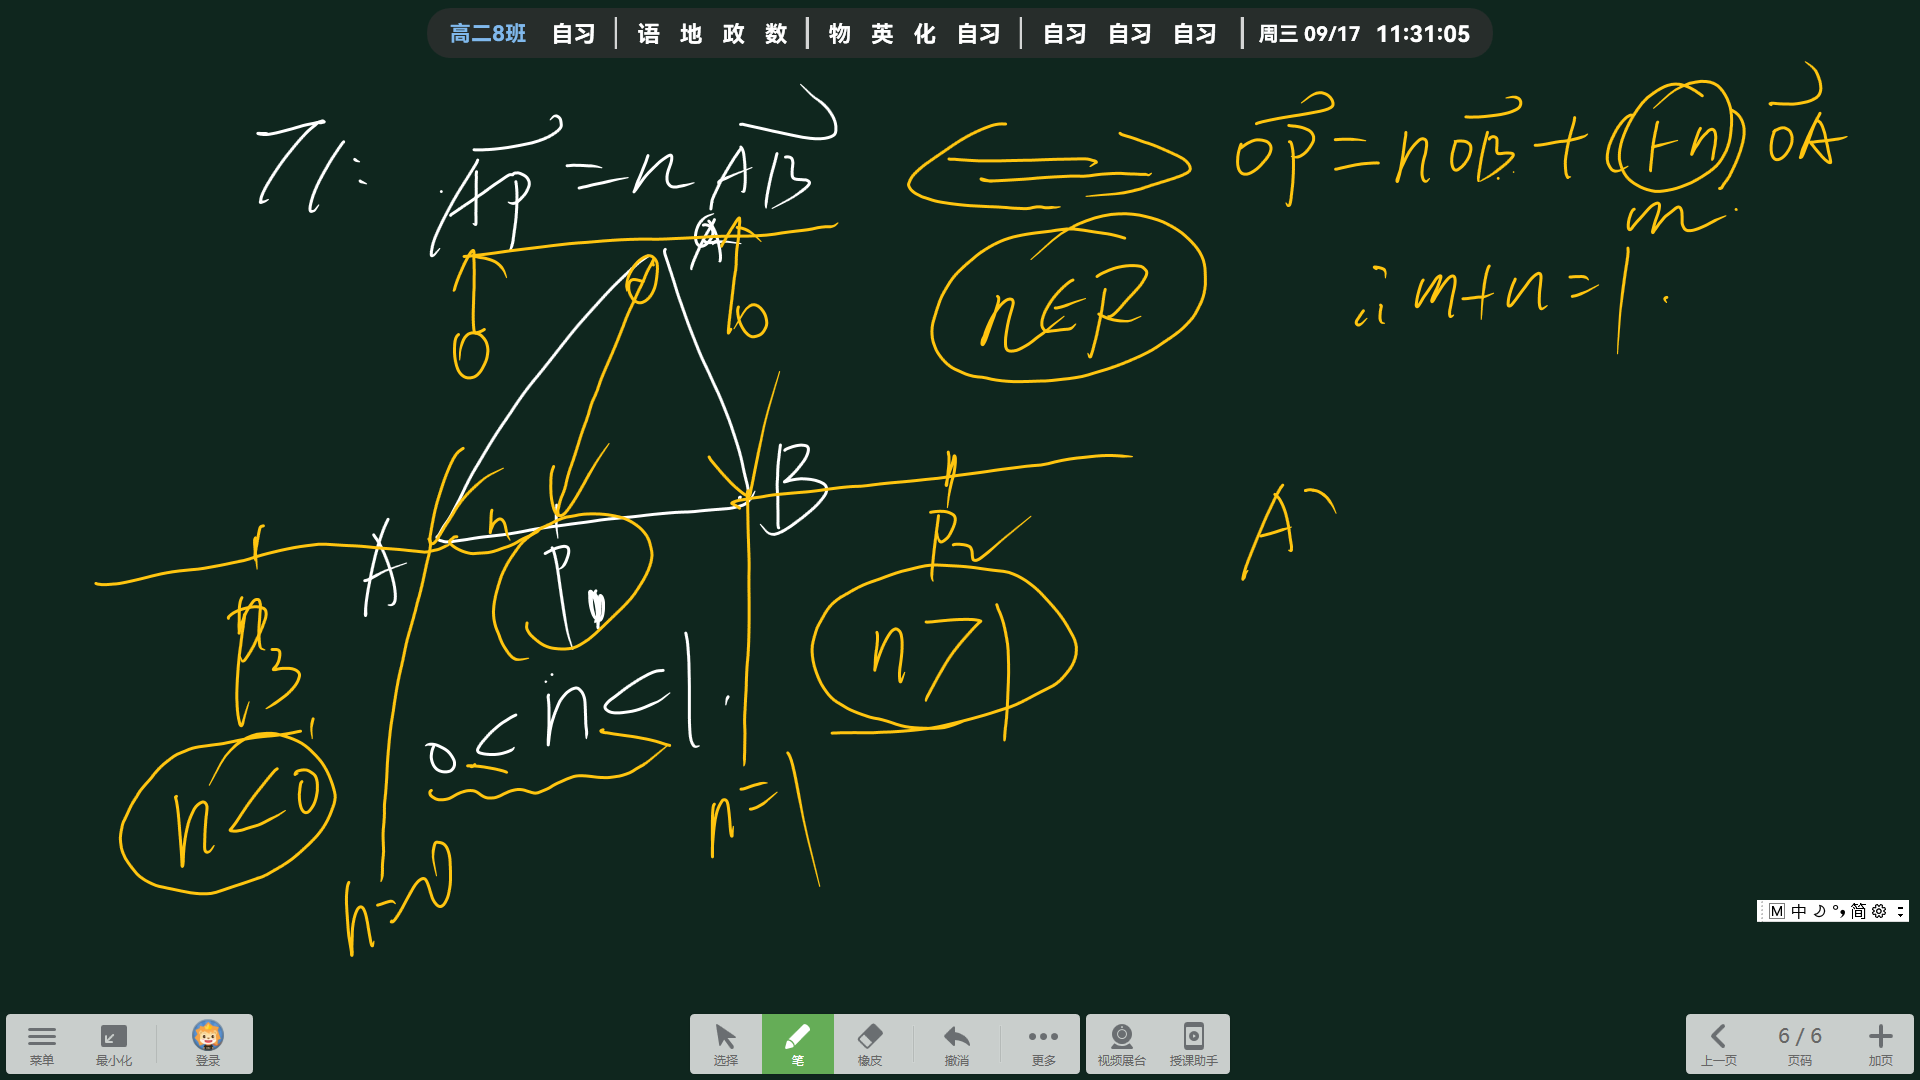 高二8班 自习 | 语 地 政 数 | 物 英 化 自习 | 自习 自习 自习 | 周三 09/17 11:31:05
T1: AP = n AB ⟺ OP = n OB + (1-n) OA
m
∴ m+n=1.
n∈R
O
b
B
A
n
P
P2
A
P3
0<n<1.
n>1
n<0
n=1
n=0
M 中 简
菜单 最小化 登录 选择 笔 橡皮 撤消 更多 视频展台 授课助手 上一页 6 / 6 页码 加页